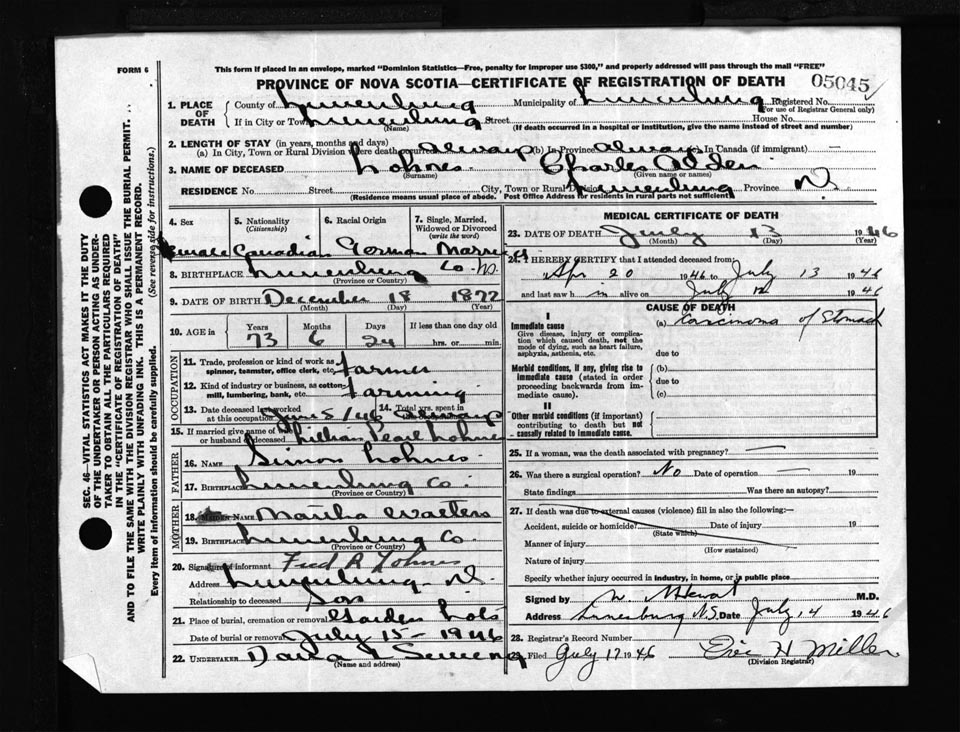 FORM 6
This form if placed in an envelope, marked "Dominion Statistics—Free, penalty for improper use $300," and properly addressed will pass through the mail "FREE"
PROVINCE OF NOVA SCOTIA—CERTIFICATE OF REGISTRATION OF DEATH 05045
1. PLACE OF DEATH County of Lunenburg Municipality of Lunenburg Registered No.
(For use of Registrar General only)
If in City or Town Lunenburg Street House No.
(Name) (If death occurred in a hospital or institution, give the name instead of street and number)
2. LENGTH OF STAY (in years, months and days)
(a) In City, Town or Rural Division where death occurred Always (b) In Province Always In Canada (if immigrant) —
3. NAME OF DECEASED Lohnes Charles Alden
(Surname) (Given name or names)
RESIDENCE No. Street City, Town or Rural Division Lunenburg Province N.S.
(Residence means usual place of abode. Post Office Address for residents in rural parts not sufficient)
4. Sex 5. Nationality (Citizenship) 6. Racial Origin 7. Single, Married, Widowed or Divorced (write the word)
Canadian German Married
8. BIRTHPLACE Lunenburg Co. N.S.
(Province or Country)
9. DATE OF BIRTH December 18 1872
(Month) (Day) (Year)
10. AGE in Years Months Days If less than one day old
73 6 24 hrs. or min.
OCCUPATION
11. Trade, profession or kind of work as spinner, teamster, office clerk, etc. Farmer
12. Kind of industry or business, as cotton mill, lumbering, bank, etc. Farming
13. Date deceased last worked at this occupation June 5/46 14. Total yrs. spent in Always
15. If married give name of wife or husband of deceased Lillian Pearl Lohnes
FATHER
16. NAME Simon Lohnes
17. BIRTHPLACE Lunenburg Co.
(Province or Country)
MOTHER
18. MAIDEN NAME Martha Walters
19. BIRTHPLACE Lunenburg Co.
(Province or Country)
20. Signature of informant Fred A Lohnes
Address Lunenburg N.S.
Relationship to deceased Son
21. Place of burial, cremation or removal Garden Lots
Date of burial or removal July 15 - 1946
22. UNDERTAKER
(Name and address)
MEDICAL CERTIFICATE OF DEATH
23. DATE OF DEATH July 13 1946
(Month) (Day) (Year)
24. I HEREBY CERTIFY that I attended deceased from:
Apr 20 1946 to July 13 1946
and last saw him alive on July 12 1946
CAUSE OF DEATH
I
Immediate cause (a) Carcinoma of Stomach
Give disease, injury or complication which caused death, not the mode of dying, such as heart failure, asphyxia, asthenia, etc.
due to
Morbid conditions, if any, giving rise to immediate cause (stated in order proceeding backwards from immediate cause).
(b)
due to
(c)
II
Other morbid conditions (if important) contributing to death but not causally related to immediate cause.
25. If a woman, was the death associated with pregnancy? —
26. Was there a surgical operation? No Date of operation — 19
State findings Was there an autopsy?
27. If death was due to external causes (violence) fill in also the following:—
Accident, suicide or homicide? Date of injury 19
(State which)
Manner of injury
(How sustained)
Nature of injury
Specify whether injury occurred in industry, in home, or in public place
Signed by M.D.
Address Lunenburg N.S. Date July 14 1946
28. Registrar's Record Number
29. Filed July 17 1946 Eric H Miller
(Division Registrar)
SEC. 46—VITAL STATISTICS ACT MAKES IT THE DUTY
OF THE UNDERTAKER OR PERSON ACTING AS UNDERTAKER TO OBTAIN ALL THE PARTICULARS REQUIRED
IN THE "CERTIFICATE OF REGISTRATION OF DEATH"
AND TO FILE THE SAME WITH THE DIVISION REGISTRAR WHO SHALL ISSUE THE BURIAL PERMIT.
WRITE PLAINLY WITH UNFADING INK. THIS IS A PERMANENT RECORD.
Every item of information should be carefully supplied. (See reverse side for instructions.)